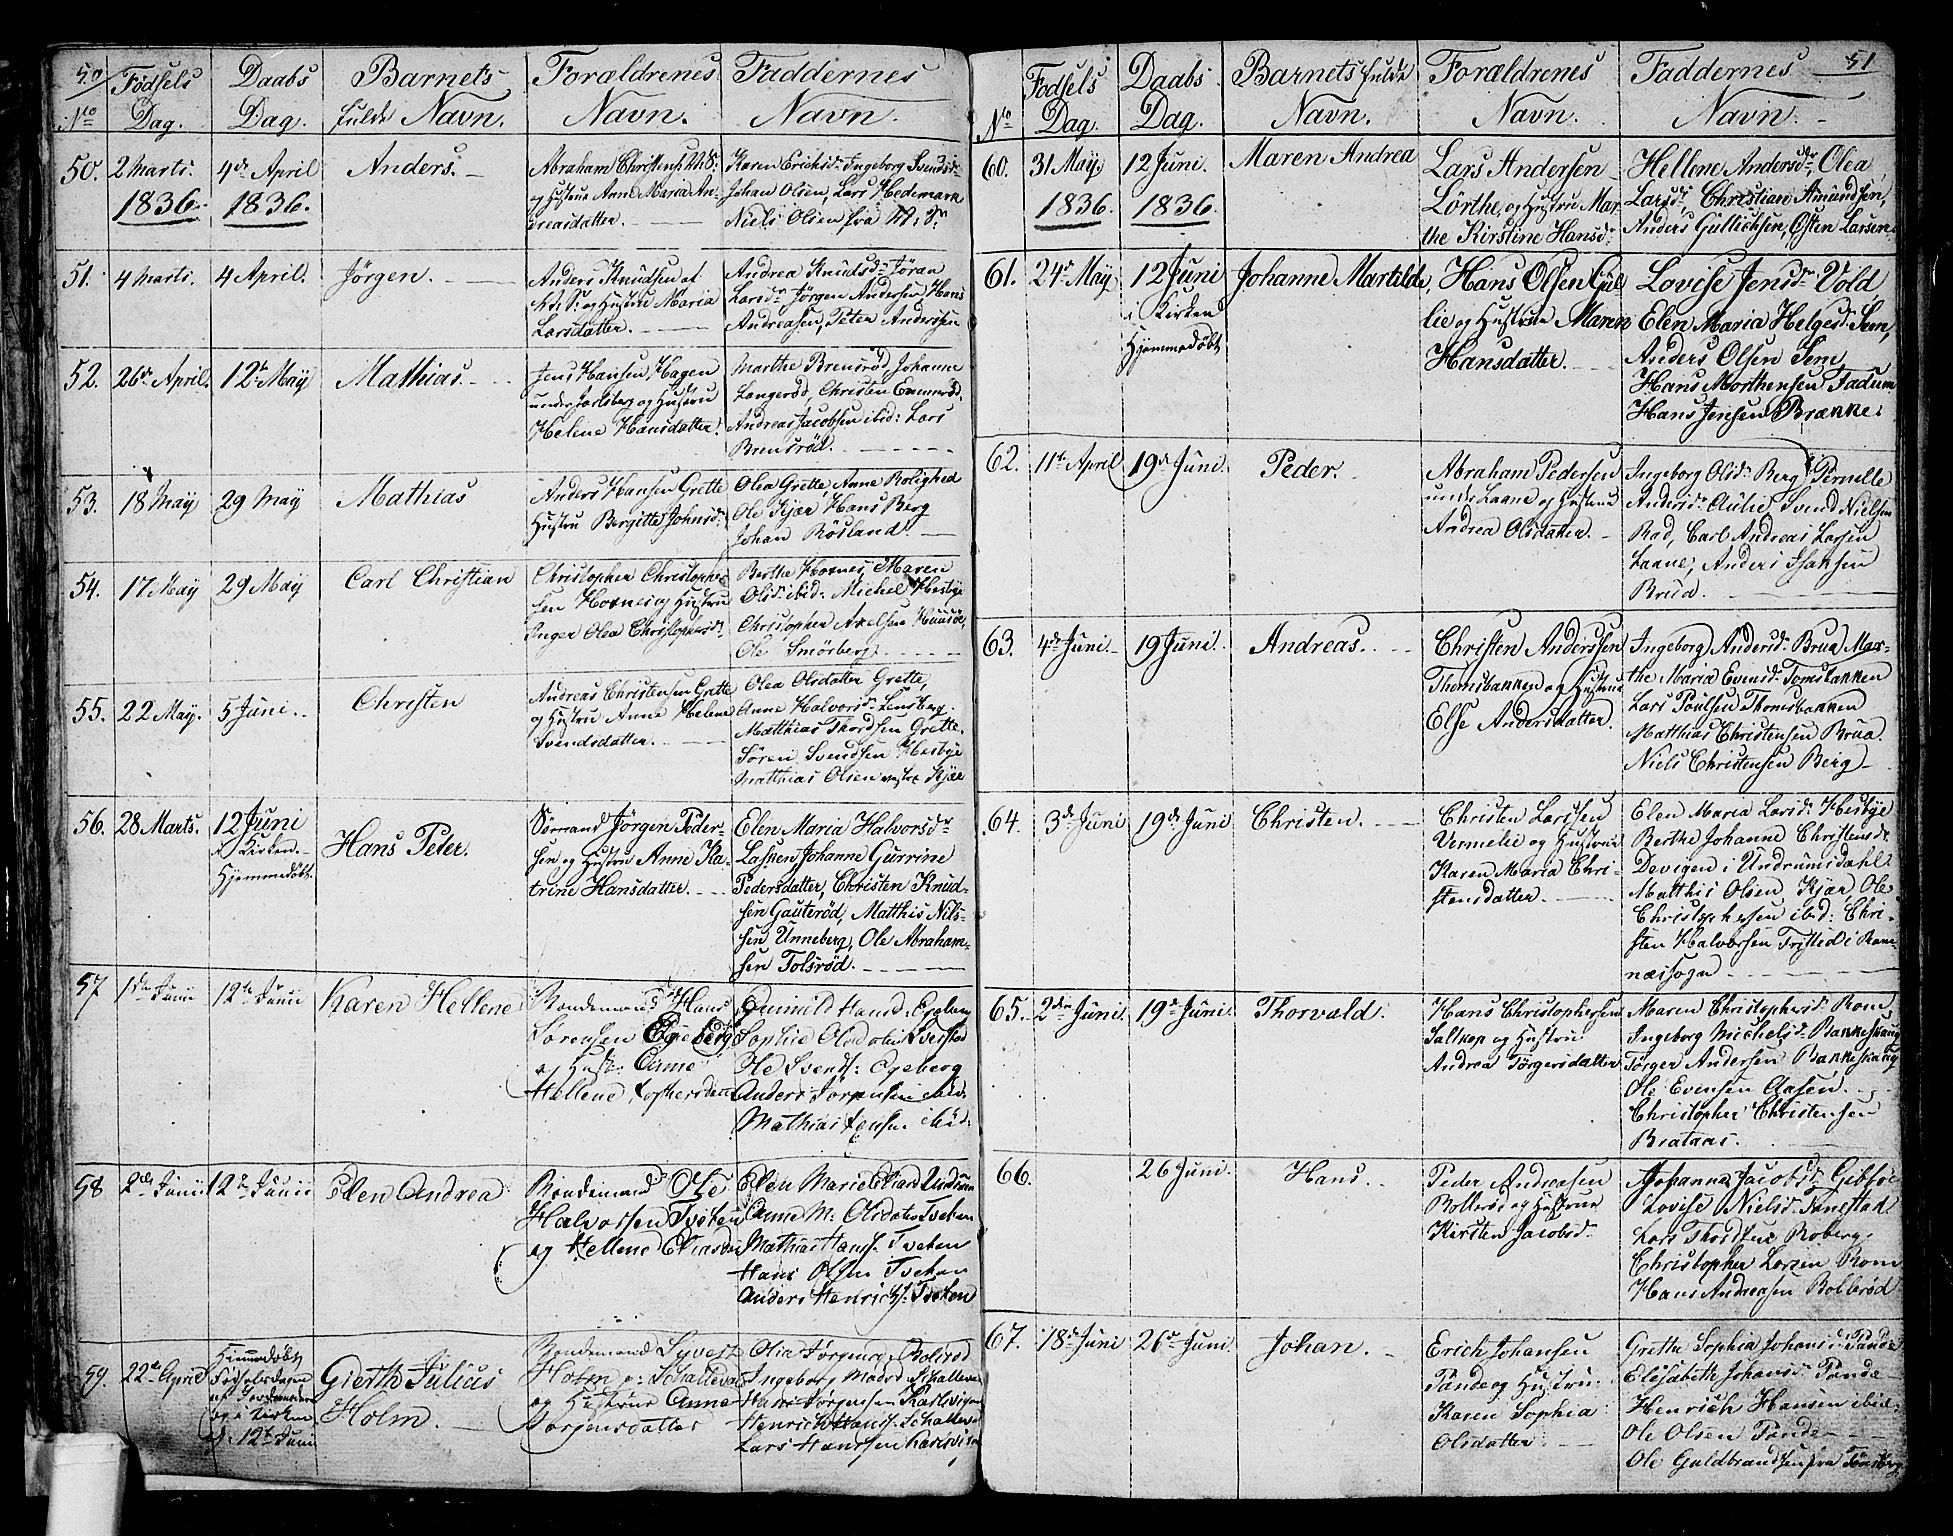 50
Fødsels Daabs Barnets Forældrenes Faddernes
No Dag. Dag. fulde Navn. Navn. Navn.
50. 2 Marts. 4de April Anders.
1836. 1836.
Abraham Christens: V: S:
og Hustru Anne Maria An-
dreasdatter.
Karen Ericksdr Ingeborg Svends-
Johan Olsen, Lars Hedemark
Niels Olsen fra
51. 4 Marts. 4 April. Jørgen.
Anders Knudsen af
og Hustru Maria
Larsdatter.
Andrea Knudsdr Jøran
Larsdr Jørgen Andersen, Hans
Andreasen, Peter Anderssen
52. 26de April. 12te May Mathias.
Jens Hansen, Hagen
under Jarlsberg og Hustru
Helene Hansdatter.
Marthe Brensrød, Johanne
Langerød, Christen
Andreas Jacobsen ibid: Lars
Brensrød.
53. 18 May 29 May Mathias
Anders Hansen Grette
Hustru Bergitte Johnsd:
Olea Grette, Anne Rolighed
Ole Kjær, Hans Berg
Johan Røsland.
54. 17 May 29 May Carl Christian
Christopher Christopher-
sen Hornes og Hustru
Inger Olea Christophersd:
Berthe Hornes, Maren
Olsd: ibid: Michel Hesbye
Christopher Axelsen
Ole Smørberg.
55. 22 May. 5 Juni. Christen
Andreas Christensen Grette
og Hustru Anne Helene
Svendsdatter.
Olea Olsdatter Grette,
Anne Halvorsd:
Matthias Thordsen Grette.
Søren Svendsen Hesbye
Matthias Olsen vestre Kjær
56. 28 Marts. 12 Juni Hans Peter.
i Kirken.
Hjemmedøbt
Sømand Jørgen Peder-
sen og Hustru Anne Ka-
trine Hansdatter.
Elen Maria Halvorsdr
Lasken, Johanne Gurrine
Pedersdatter, Christen Knud-
sen Gauterød, Matthis Nils-
sen Unneberg, Ole Abraham-
sen Tolsrød.
57 1ste Junii 12te Junii Karen Hellene
Bondemand Hans
Sørensen Egeberg
og Hust: Anne
Hellene
Gunild Hansd: Egeberg
Sophie Olsdatter
Ole Svends: Egeberg
Anders Sørensen ibid:
Mathias Jensen ibid:
58 2den Junii 12te Junii Elen Andrea
Bondemand Ole
Halvorsen Tveten
og Hellene Eliasdr
Elen Marie Eliasd
Anne M: Olsdatter Tveten
Mathias Hanss: Tveten
Hans Olsen Tveten
Anders Henrichs: Tveten
59. 22de April Hiemmedøbt Gierth Julius
Fødselsdagen Holm.
og i Kirken
d: 12te Junii
Bondemand Syvert
Holm
og Hustrue Anne
Jørgensdatter
Olia Jørgens: Bolsrød
Ingeborg Madsd:
Hans Jørgensen Karlsvigen
Henrich Hanss:
Lars Hanssen Karlsvigen
51
Fødsels Daabs Barnets fulde Forældrenes Faddernes
No Dag. Dag. Navn. Navn. Navn.
60. 31 May. 12 Juni. Maren Andrea
1836. 1836.
Lars Andersen
Lørthe, og Hustru Mar-
the Kirstine Hansd:
Hellene Andersdr, Olea
Larsd:, Christian Amundsen,
Anders Gullichsen, Østen Larsen
61. 24de May 12 Juni Johanne Martilde,
i Kirken
Hjemmedøbt
Hans Olsen Gul-
lie og Hustrue Maren
Hansdatter.
Lovise Jensdr Vold
Elen Maria Helgesd: Sem,
Anders Olsen Sem,
Hans Morthensen, Fadum
Hans Jensen Brænne.
62. 11te April 19de Juni Peder.
Abraham Pedersen
under Laane og Hustrue
Andrea Olsdatter.
Ingeborg Olsdr Berg, Pernelle
Andersd: Aulie, Svend Nielsen
Rød, Carl Andreas Larsen
Laane, Anders Isaksen
Brua.
63. 4de Juni. 19 Juni. Andreas.
Christen Anderssen
Thomsbakken og Hustrue
Else Andersdatter.
Ingeborg Andersd: Brua, Mar-
the Maria Evensd: Tomsbakken
Lars Poulsen Thomsbakken
Matthias Christensen Brua.
Niels Christensen Berg
64. 3de Juni 19de Juni Christen.
Christen Larssen
Vermelie og Hustrue
Karen Maria Chri-
stensdatter.
Elen Maria Larsd: Hesbye
Berthe Johanne Christensdr
Devigen i Undrumsdahl
Matthis Olsen Kjær, Ole
Christophersen ibid: Chri-
sten Halvorsen Tristied i Ram-
nessogn.
65. 2den Juni. 19de Juni. Thorvald.
Hans Christophersen
Saltkop og Hustru
Andrea Törgersdatter
Maren Christophersd: Rom
Ingeborg Michelsd: Bakkeskaug
Törger Andersen Bakkeskaug
Ole Evensen Aasen.
Christopher Christensen
Brataas.
66. 26 Juni. Hans.
Peder Andreasen
Bollerød og Hustrue
Kirsten Jacobsd:
Johanne Jacobsd: Gibsø
Lovise Nielsd: Tanestad
Lars Thordsen Roberg.
Christopher Larsen Rom
Hans Andreasen Bolbrød
67. 18de Juni 26de Juni. Johan.
Erich Johansen
Tande og Hustru
Karen Sophia
Olsdatter.
Grethe Sophia Johansd: Tande
Elisabeth Johansd: Tande
Henrich Hansen ibid:
Ole Olsen Tande
Ole Guldbrandsen fra Tønsberg